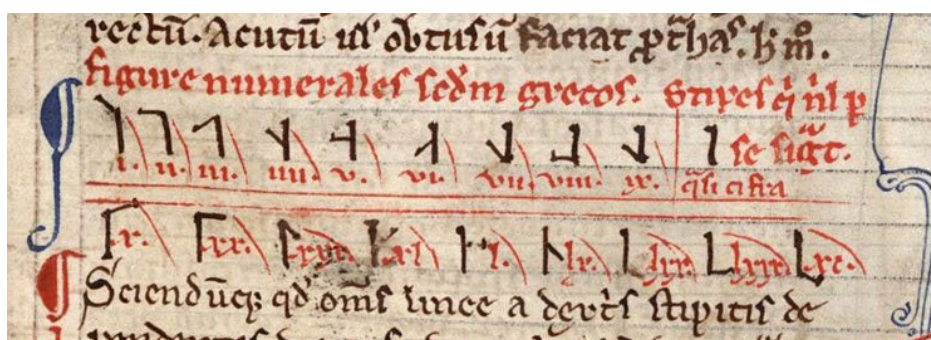 rectū. Acutū ul' obtusū faciat ꝓthas. h̄ mͦ.
figure numerales scd̄m grecos. Stipes q̇ nl̄ ꝑ
se sigͣt.
i. ii. iii. iiii. v. vi. vii. viii. ix. qͣsi cifra
x. xx. xxx. xl l. lx. lxx. lxxx. xc.
Sciend ūqꝫ qd̄ om̄s linee a dext̓s stipitis de